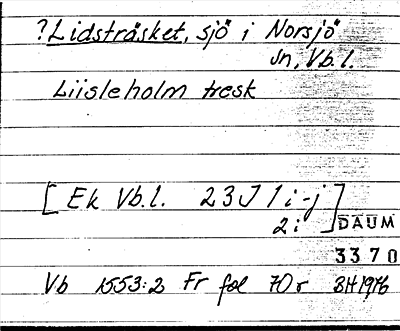 ?Lidsträsket, sjö i Norsjö
sn, Vb.l.
Liisleholm tresk
[Ek Vb.l. 23J 1i-j
2i]
DAUM
3370
Vb 1553:2 Fr fol 70r BH1976